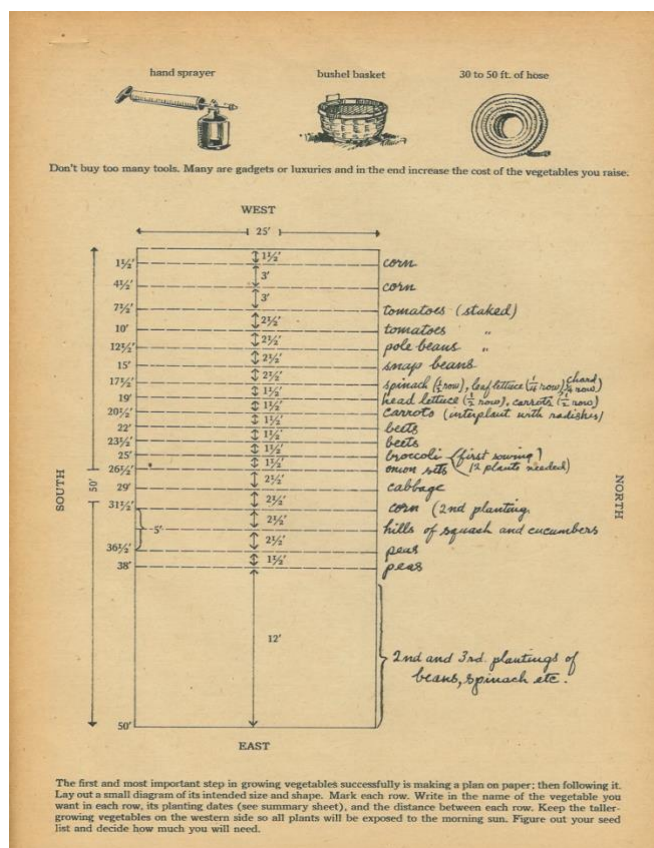 hand sprayer bushel basket 30 to 50 ft. of hose
Don't buy too many tools. Many are gadgets or luxuries and in the end increase the cost of the vegetables you raise.
WEST
25'
1½'
1½' corn
3'
4½' corn
3'
7½' tomatoes (staked)
2½'
10' tomatoes "
2½'
12½' pole beans "
2½'
15' snap beans
2½'
17½' spinach (½ row), leaf lettuce (¼ row) chard ¼ row)
1½'
19' head lettuce (½ row), carrots (½ row)
1½'
20½' carrots (interplant with radishes)
1½'
22' beets
1½'
23½' beets
1½'
25' broccoli (first sowing)
1½'
26½' onion sets (12 plants needed)
2½'
SOUTH 50' NORTH
29' cabbage
2½'
31½' corn (2nd planting
2½'
5' hills of squash and cucumbers
2½'
36½' peas
1½'
38' peas
12'
2nd and 3rd plantings of
beans, spinach etc.
50'
EAST
The first and most important step in growing vegetables successfully is making a plan on paper; then following it.
Lay out a small diagram of its intended size and shape. Mark each row. Write in the name of the vegetable you
want in each row, its planting dates (see summary sheet), and the distance between each row. Keep the taller-
growing vegetables on the western side so all plants will be exposed to the morning sun. Figure out your seed
list and decide how much you will need.